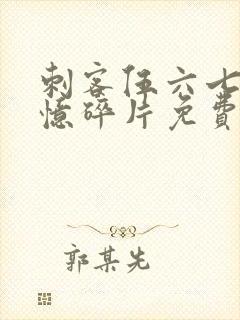 刺客伍六七
憶碎片免費
郭某先